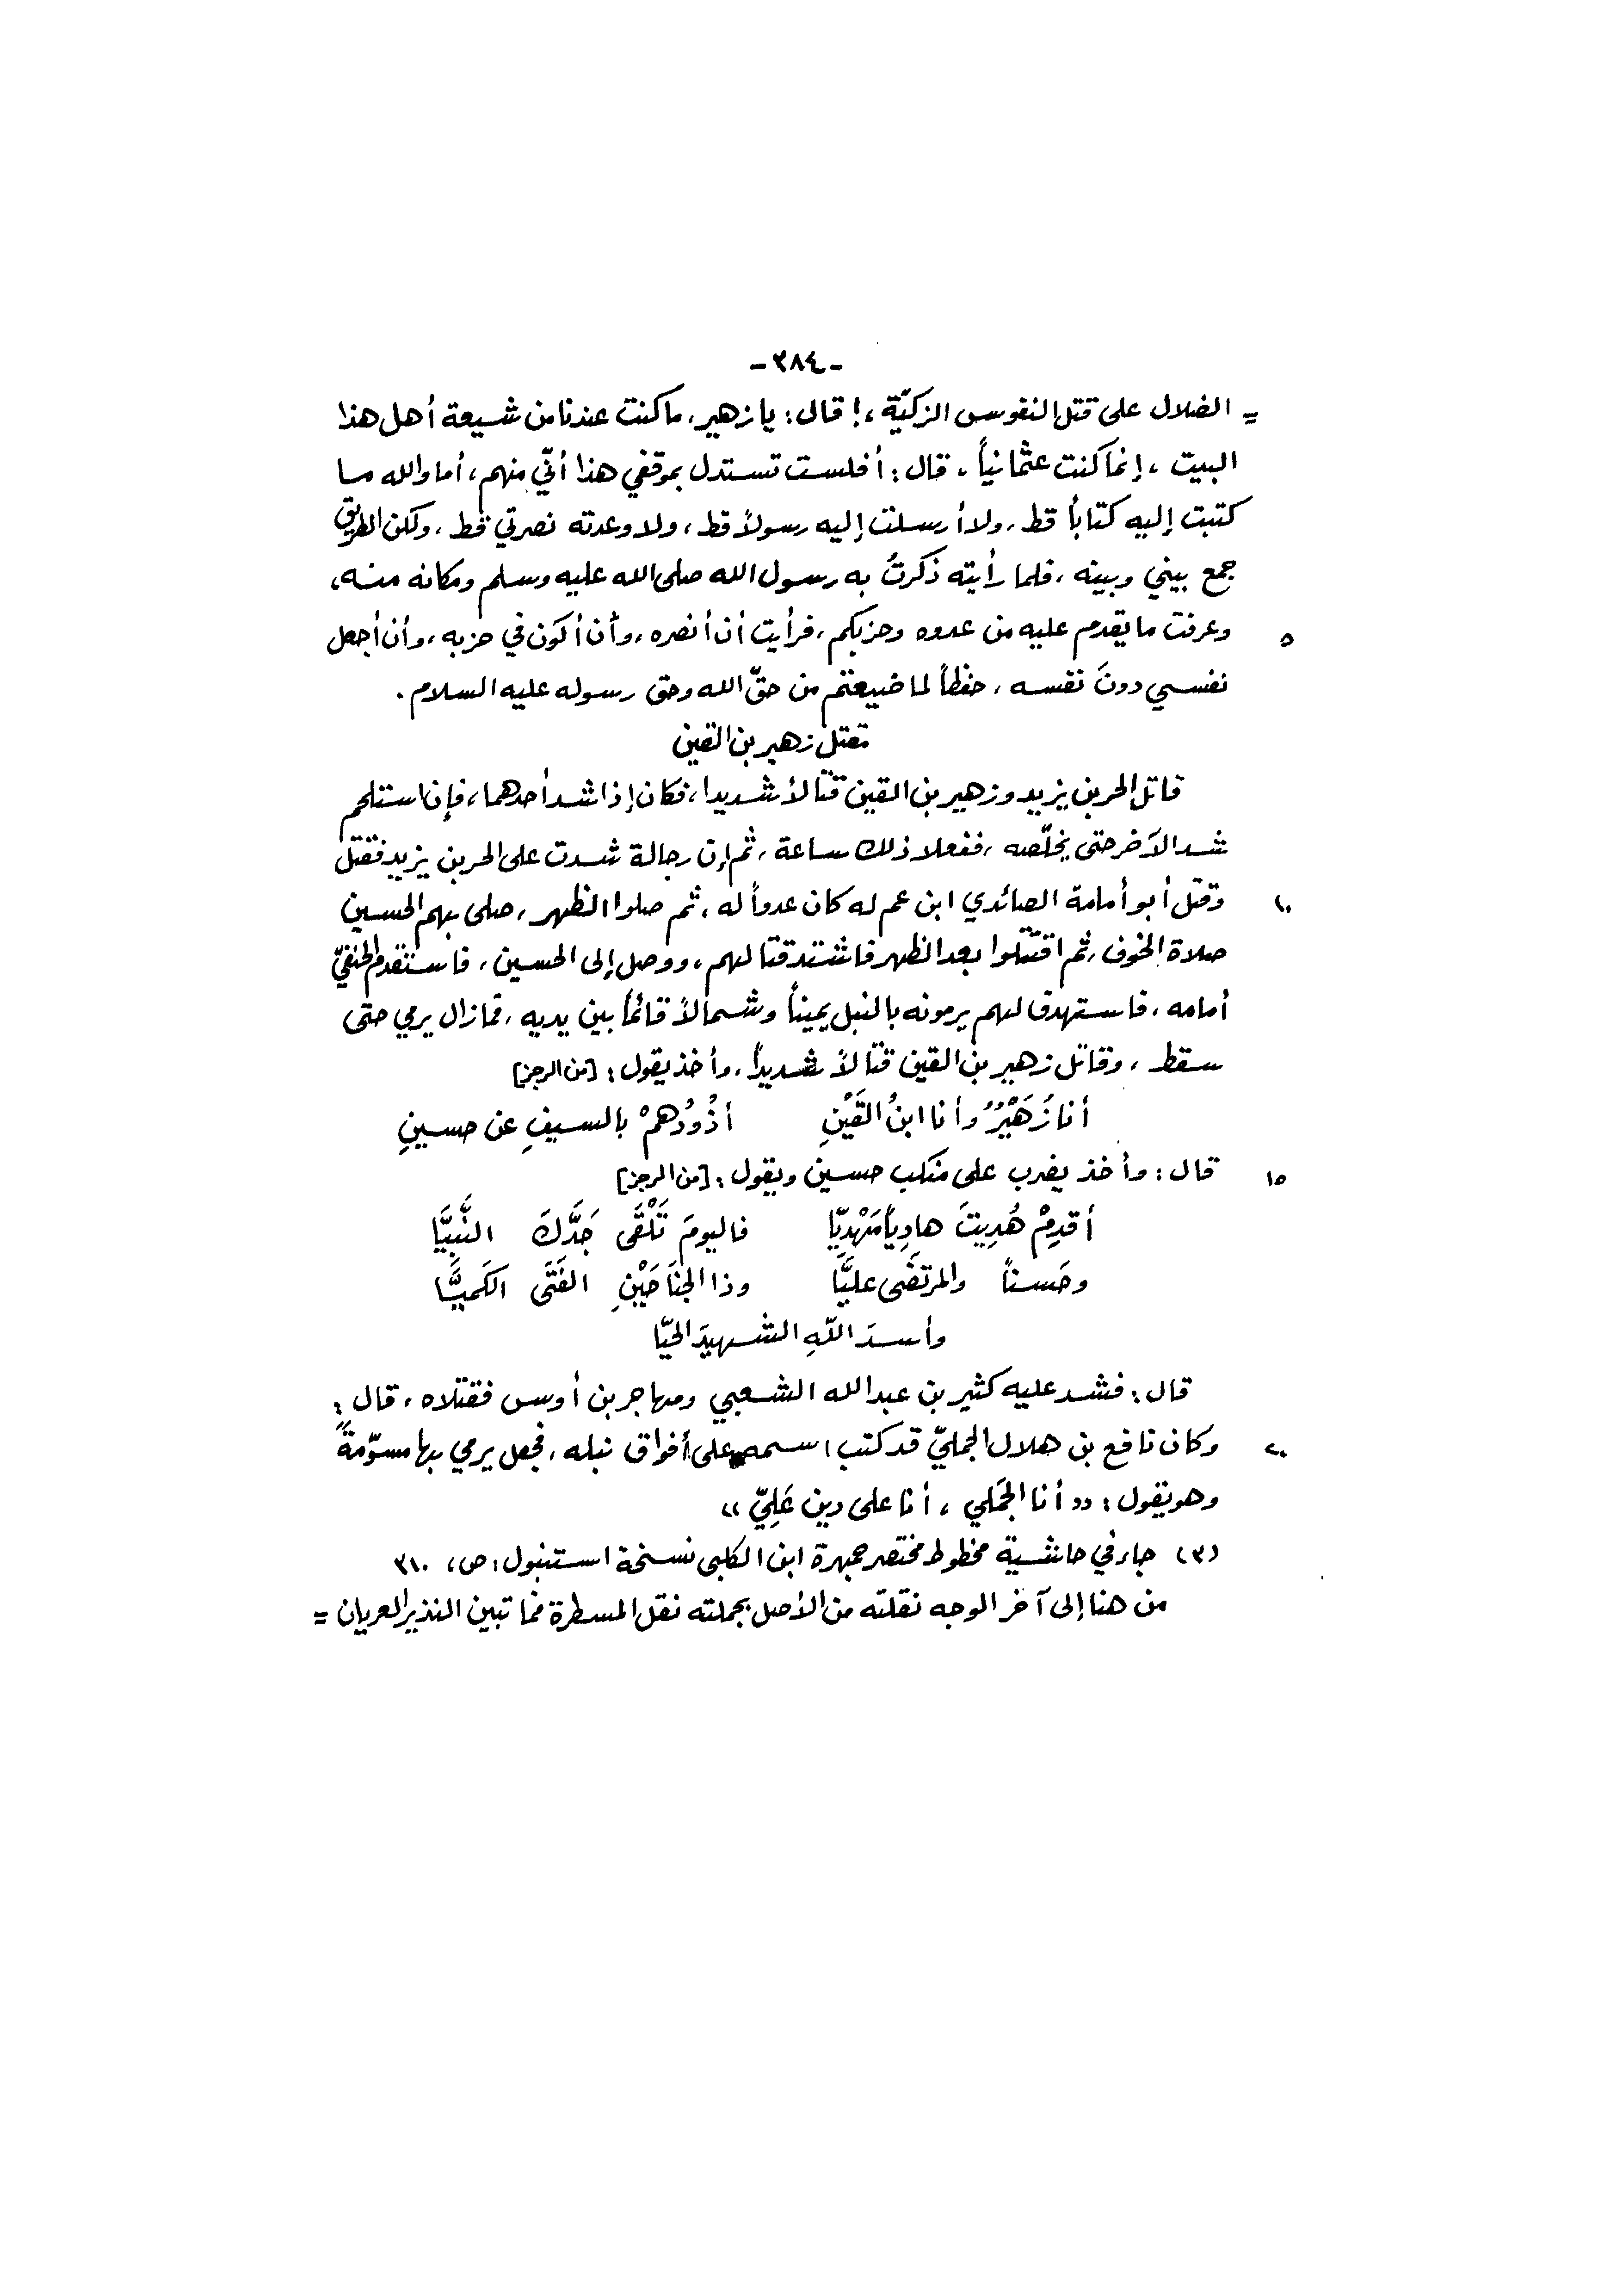 -٣٨٤-
= الضلال على قتل النفوس الزكيّة،! قال: يا زهير، ما كنت عندنا من شيعة أهل هذا
البيت، إنما كنت عثمانياً، قال: أفلست تستدل بموقفي هذا أنّي منهم، أما والله ما
كتبت إليه كتاباً قط، ولا أرسلت إليه رسولاً قط، ولا وعدته نصرتي قط، ولكن الطريق
جمع بيني وبينه، فلما رأيته ذكرتُ به رسول الله صلى الله عليه وسلم ومكانه منه،
٥ وعرفت ما يقدم عليه من عدوه وحزبكم، فرأيت أن أنصره، وأن أكون في حزبه، وأن أجعل
نفسي دونَ نفسه، حفظاً لما ضيعتم من حقّ الله وحق رسوله عليه السلام.
مقتل زهير بن القين
قاتل الحر بن يزيد وزهير بن القين قتالاً شديدا، فكان إذا شد أحدهما، فإن استلحم
شد الآخر حتى يخلّصه، ففعلا ذلك ساعة، ثم إن رجالة شدت على الحر بن يزيد فقتل
١٠ وقتل أبو أمامة الصائدي ابن عم له كان عدواً له، ثم صلوا الظهر، صلى بهم الحسين
صلاة الخوف، ثم اقتتلوا بعد الظهر فاشتد قتالهم، ووصل إلى الحسين، فاستقدم الحنفيّ
أمامه، فاستهدف لهم يرمونه بالنبل يميناً وشمالاً قائماً بين يديه، فمازال يرمي حتى
سقط، وقاتل زهير بن القين قتالاً شديداً، وأخذ يقول: [من الرجز]
أنا زُهَيْرٌ وأنا ابنُ القَيْنِ أذُودُهمْ بالسيفِ عن حسينِ
١٥ قال: وأخذ يضرب على منكب حسين ويقول: [من الرجز]
أقدِمْ هُدِيتَ هادِياً مَهْدِيّا فاليومَ تَلْقَى جَدَّكَ النَّبِيَّا
وحَسناً والمرتضَى عليَّا وذا الجنَاحَيْنِ الفَتَى الكَمِيَّا
وأسدَ اللّهِ الشهيدَ الحَيّا
قال: فشد عليه كثير بن عبد الله الشعبي ومهاجر بن أوس فقتلاه، قال:
٢٠ وكان نافع بن هلال الجمليّ قد كتب اسمه على أفواق نبله، فجعل يرمي بها مسوّمةً
وهو يقول: «أنا الجَملي، أنا على دين عَلِيّ»
(٣) جاء في حاشية مخطوط مختصر جمهرة ابن الكلبي نسخة استنبول: ص، ٣١٠
من هنا إلى آخر الوجه نقلته من الأصل بجملته نقل المسطرة فما تبين النذير العريان =